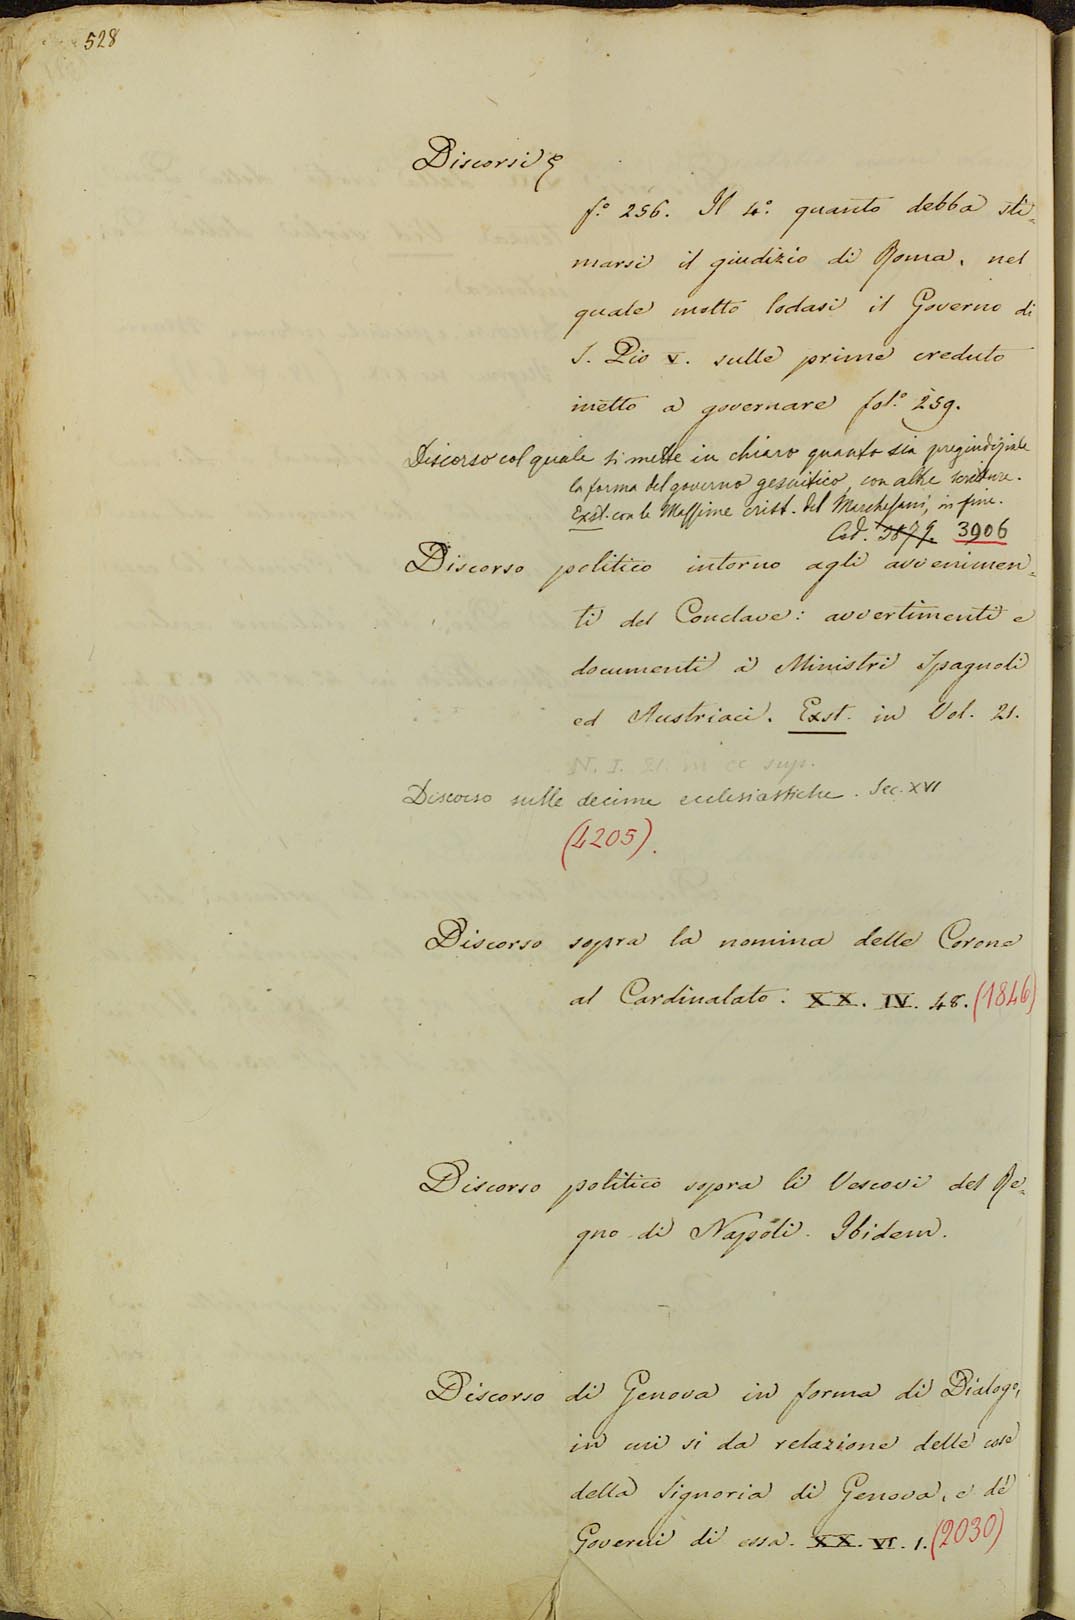 528
Discorsi
f.º 256. Il 4.º quanto debba sti-
marsi il giudizio di Roma, nel
quale molto lodasi il Governo di
S. Pio V. sulle prime creduto
inetto a governare fol.º 259.
Discorso col quale si mette in chiaro quanto sia pregiudiziale
la forma del governo gesuitico, con altre scritture.
Exst. con le Massime crist. del Marchesani, in fine.
Cod. 3879. 3906
Discorso politico intorno agli avvenimen-
ti del Conclave: avvertimenti e
documenti a' Ministri Spagnoli
ed Austriaci. Exst. in Vol. 21.
N. I. 21. in cc sup.
Discorso sulle decime ecclesiastiche. Sec. XVI
(4205).
Discorso sopra la nomina delle Corone
al Cardinalato. XX. IV. 48. (1846)
Discorso politico sopra li Vescovi del Re-
gno di Napoli. Ibidem.
Discorso di Genova in forma di Dialogo,
in cui si da relazione delle cose
della Signoria di Genova, e de'
Governi di essa. XX. VI. 1. (2030)